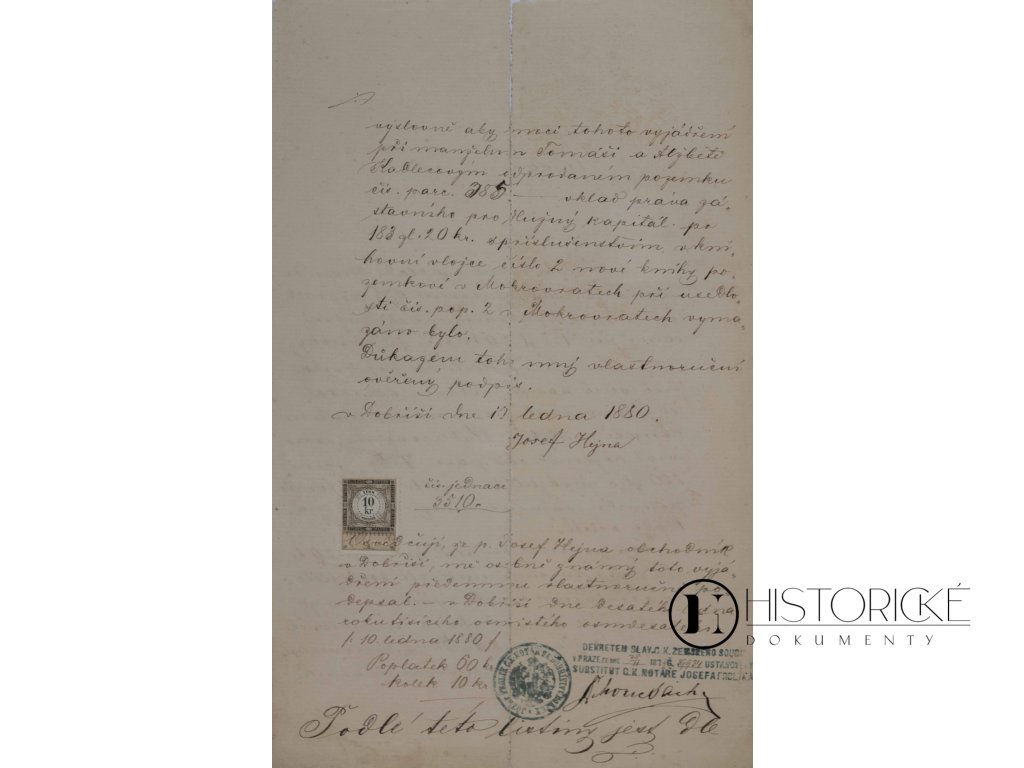 výslovně aby mocí tohoto vyjádření
při manželům Tomáši a Alžbětě
Kadlecovým odprodaném pozemku
čís. parc. 385 — vklad práva zá-
stavního pro Hujný kapitál pr
183 zl. 20 kr. s příslušenstvím v kni
hovní vložce číslo 2 nové knihy po-
zemkové v Mokrovratech při usedlo-
sti čís. pop. 2 v Mokrovratech vyma-
záno bylo.
Důkazem toho můj vlastnoruční
ověřený podpis.
v Dobříši dne ledna 1880.
Josef Hejna
čís. jednací
3510
10
kr.
Osvědčuji, že p. Josef Hejna obchodník
v Dobříši, mě osobně známý toto vyjá-
dření předemnou vlastnoručně po
depsal. — v Dobříši dne desátého ledna
roku tisícího osmistého osmdesátého
/ 10. ledna 1880 /
Poplatek 60 kr
Kolek 10 kr
DEKRETEM SLAV. C. K. ZEMSKÉHO SOUDU
V PRAZE ZE DNE 187 USTANOVENÝ
SUBSTITUT C. K. NOTÁŘE JOSEFA
Podlé této listiny jest dle
HISTORICKÉ
DOKUMENTY